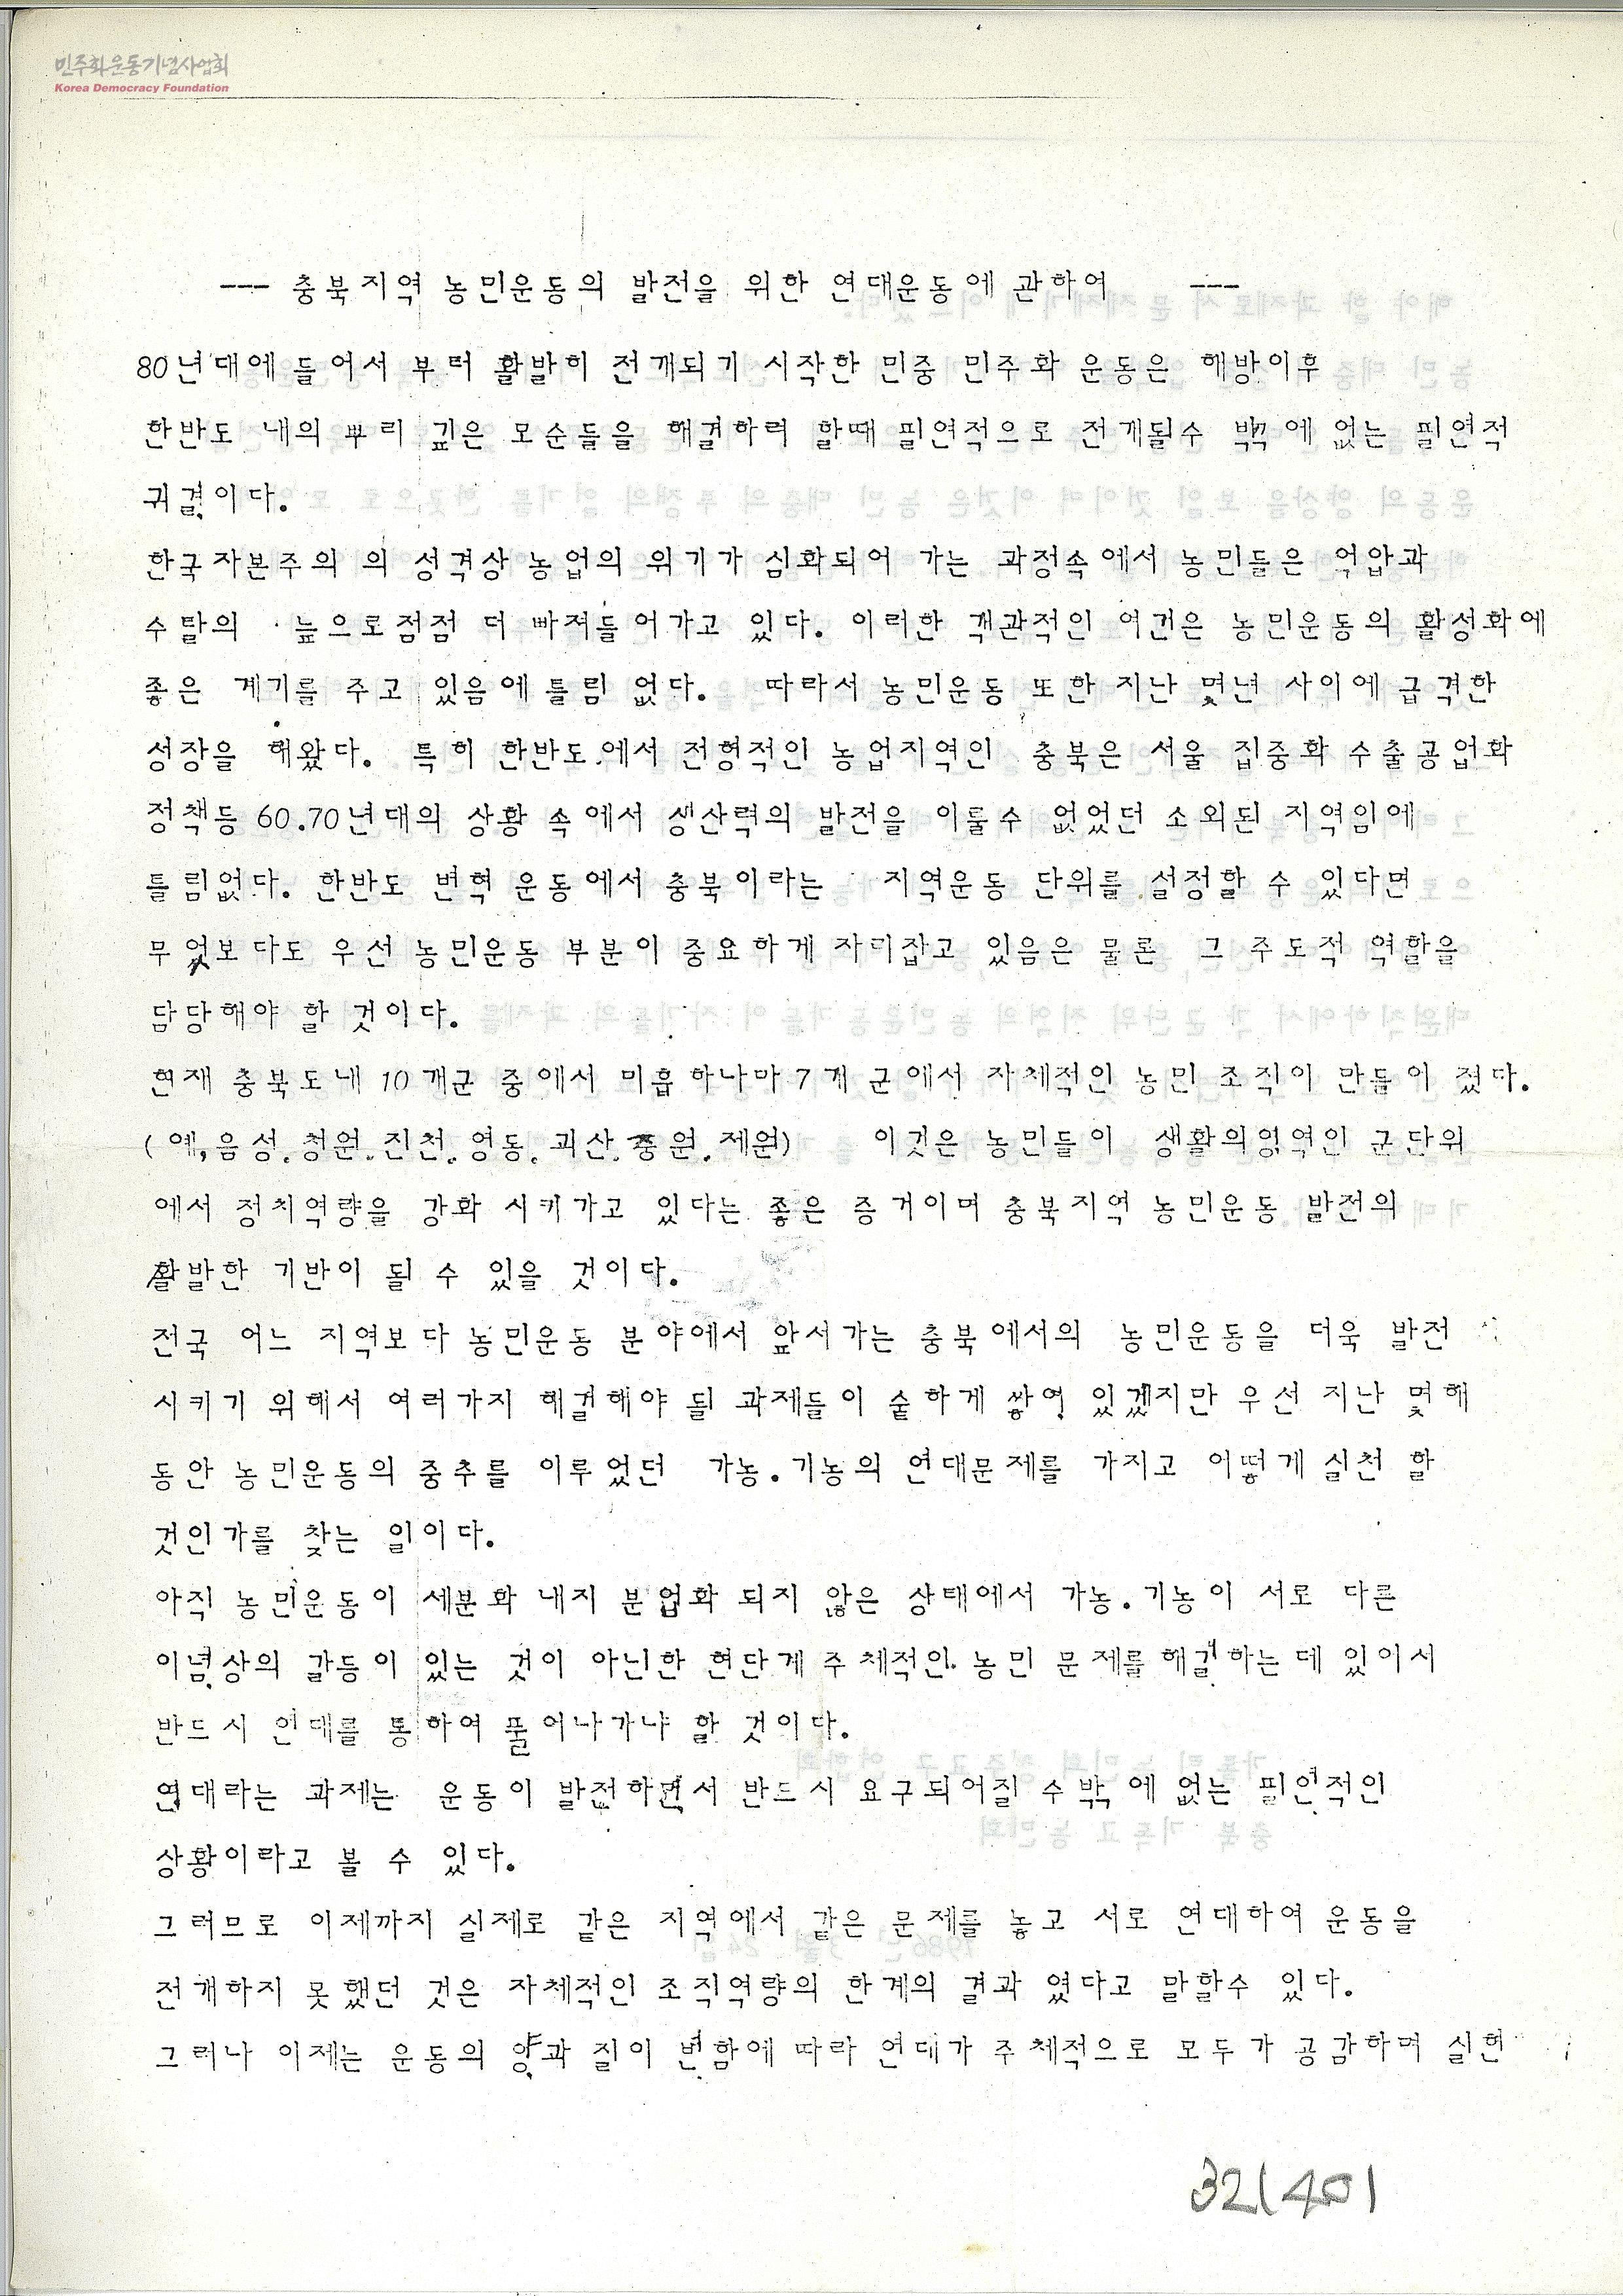 민주화운동기념사업회
Korea Democracy Foundation
--- 충북지역 농민운동의 발전을 위한 연대운동에 관하여 ---
80년대에 들어서 부터 활발히 전개되기 시작한 민중 민주화 운동은 해방이후
한반도 내의 뿌리 깊은 모순들을 해결하려 할때 필연적으로 전개될수 밖에 없는 필연적
귀결이다.
한국자본주의 의 성격상 농업의 위기가 심화되어 가는 과정속에서 농민들은 억압과
수탈의 늪으로점점 더 빠져들어가고 있다. 이러한 객관적인 여건은 농민운동의 활성화에
좋은 계기를 주고 있음에 틀림 없다. 따라서 농민운동 또한 지난 몇년 사이에 급격한
성장을 해왔다. 특히 한반도에서 전형적인 농업지역인 충북은 서울 집중화 수출공업화
정책등 60.70년대의 상황 속에서 생산력의 발전을 이룰수 없었던 소외된 지역임에
틀림없다. 한반도 변혁 운동에서 충북이라는 지역운동 단위를 설정할 수 있다면
무엇보다도 우선 농민운동 부분이 중요하게 자리잡고 있음은 물론 그 주도적 역할을
담당해야 할 것이다.
현재 충북도내 10개군 중에서 미흡하나마 7개 군에서 자체적인 농민 조직이 만들어 졌다.
(예,음성.청원.진천.영동.괴산.중원.제원) 이것은 농민들이 생활의영역인 군단위
에서 정치역량을 강화 시키가고 있다는 좋은 증거이며 충북지역 농민운동 발전의
활발한 기반이 될 수 있을 것이다.
전국 어느 지역보다 농민운동 분야에서 앞서가는 충북에서의 농민운동을 더욱 발전
시키기 위해서 여러가지 해결해야 될 과제들이 숱하게 쌓여 있겠지만 우선 지난 몇해
동안 농민운동의 중추를 이루었던 가농.기농의 연대문제를 가지고 어떻게 실천 할
것인가를 찾는 일이다.
아직 농민운동이 세분화 내지 분업화 되지 않은 상태에서 가농.기농이 서로 다른
이념상의 갈등이 있는 것이 아닌한 현단계 주체적인 농민 문제를 해결하는데 있어서
반드시 연대를 통하여 풀어나가야 할 것이다.
연대라는 과제는 운동이 발전하면서 반드시 요구되어질 수밖에 없는 필연적인
상황이라고 볼 수 있다.
그러므로 이제까지 실제로 같은 지역에서 같은 문제를 놓고 서로 연대하여 운동을
전개하지 못했던 것은 자체적인 조직역량의 한계의 결과 였다고 말할수 있다.
그러나 이제는 운동의 양과 질이 변함에 따라 연대가 주체적으로 모두가 공감하며 실현
321401